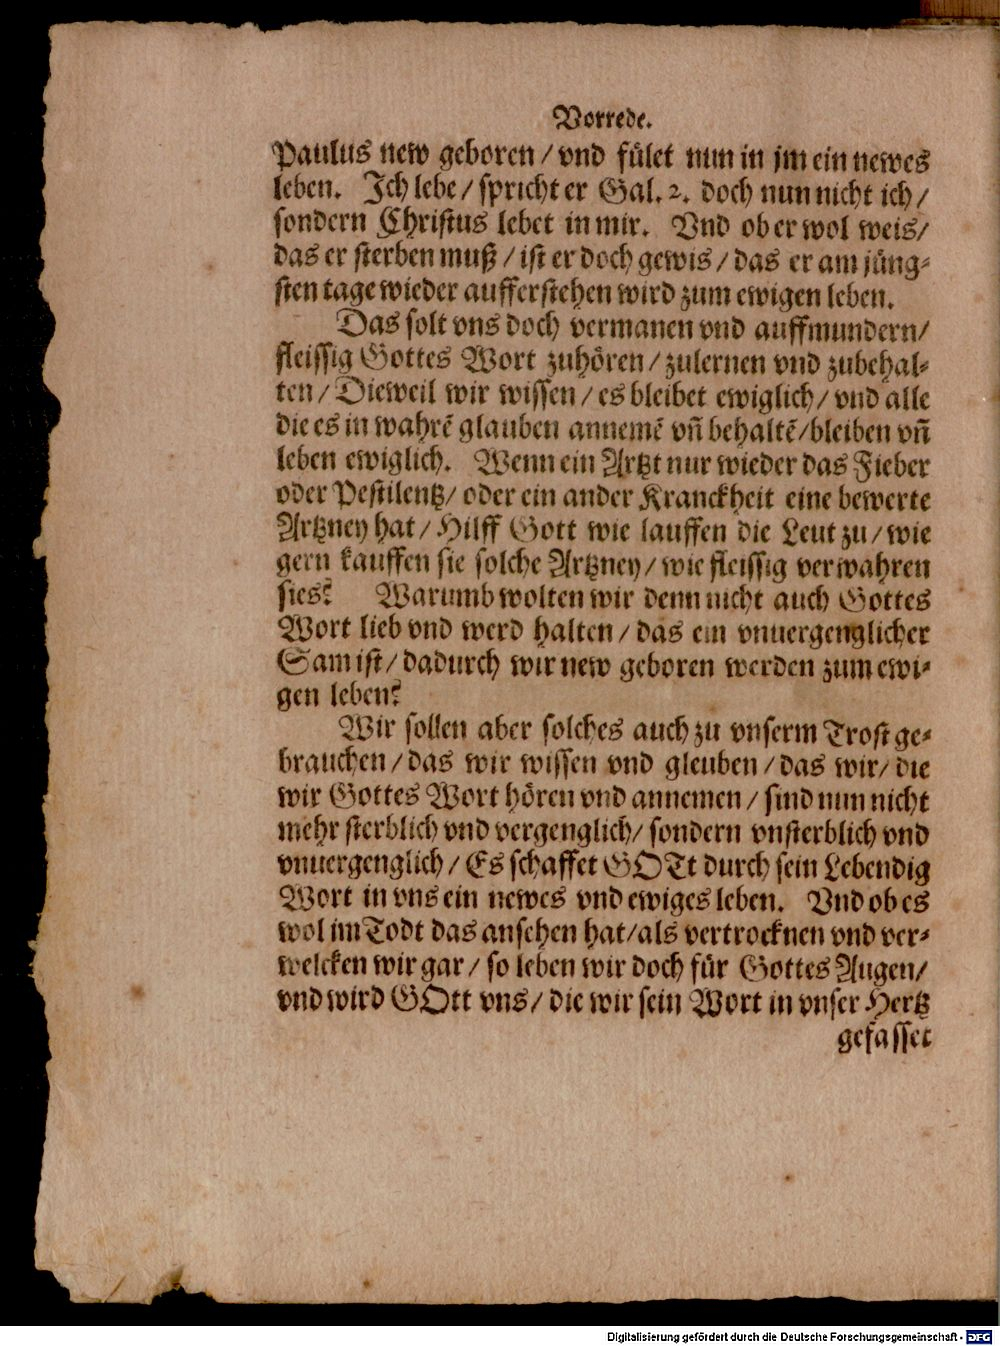 Vorrede.
Paulus new geboren / vnd fület nun in jm ein newes
leben. Ich lebe / spricht er Gal. 2. doch nun nicht ich /
sondern Christus lebet in mir. Vnd ob er wol weis /
das er sterben muß / ist er doch gewis / das er am jüng-
sten tage wieder aufferstehen wird zum ewigen leben.
Das solt vns doch vermanen vnd auffmundern /
fleissig Gottes Wort zuhören / zulernen vnd zubehal-
ten / Dieweil wir wissen / es bleibet ewiglich / vnd alle
die es in wahrē glauben annemē vñ behaltē / bleiben vñ
leben ewiglich. Wenn ein Artzt nur wieder das Fieber
oder Pestilentz / oder ein ander Kranckheit eine bewerte
Artzney hat / Hilff Gott wie lauffen die Leut zu / wie
gern kauffen sie solche Artzney / wie fleissig verwahren
sies? Warumb wolten wir denn nicht auch Gottes
Wort lieb vnd werd halten / das ein vnuergenglicher
Sam ist / dadurch wir new geboren werden zum ewi-
gen leben?
Wir sollen aber solches auch zu vnserm Trost ge-
brauchen / das wir wissen vnd gleuben / das wir / die
wir Gottes Wort hören vnd annemen / sind nun nicht
mehr sterblich vnd vergenglich / sondern vnsterblich vnd
vnuergenglich / Es schaffet GOTt durch sein Lebendig
Wort in vns ein newes vnd ewiges leben. Vnd ob es
wol im Todt das ansehen hat / als vertrocknen vnd ver-
welcken wir gar / so leben wir doch für Gottes Augen /
vnd wird GOtt vns / die wir sein Wort in vnser Hertz
gefasset
Digitalisierung gefördert durch die Deutsche Forschungsgemeinschaft - DFG